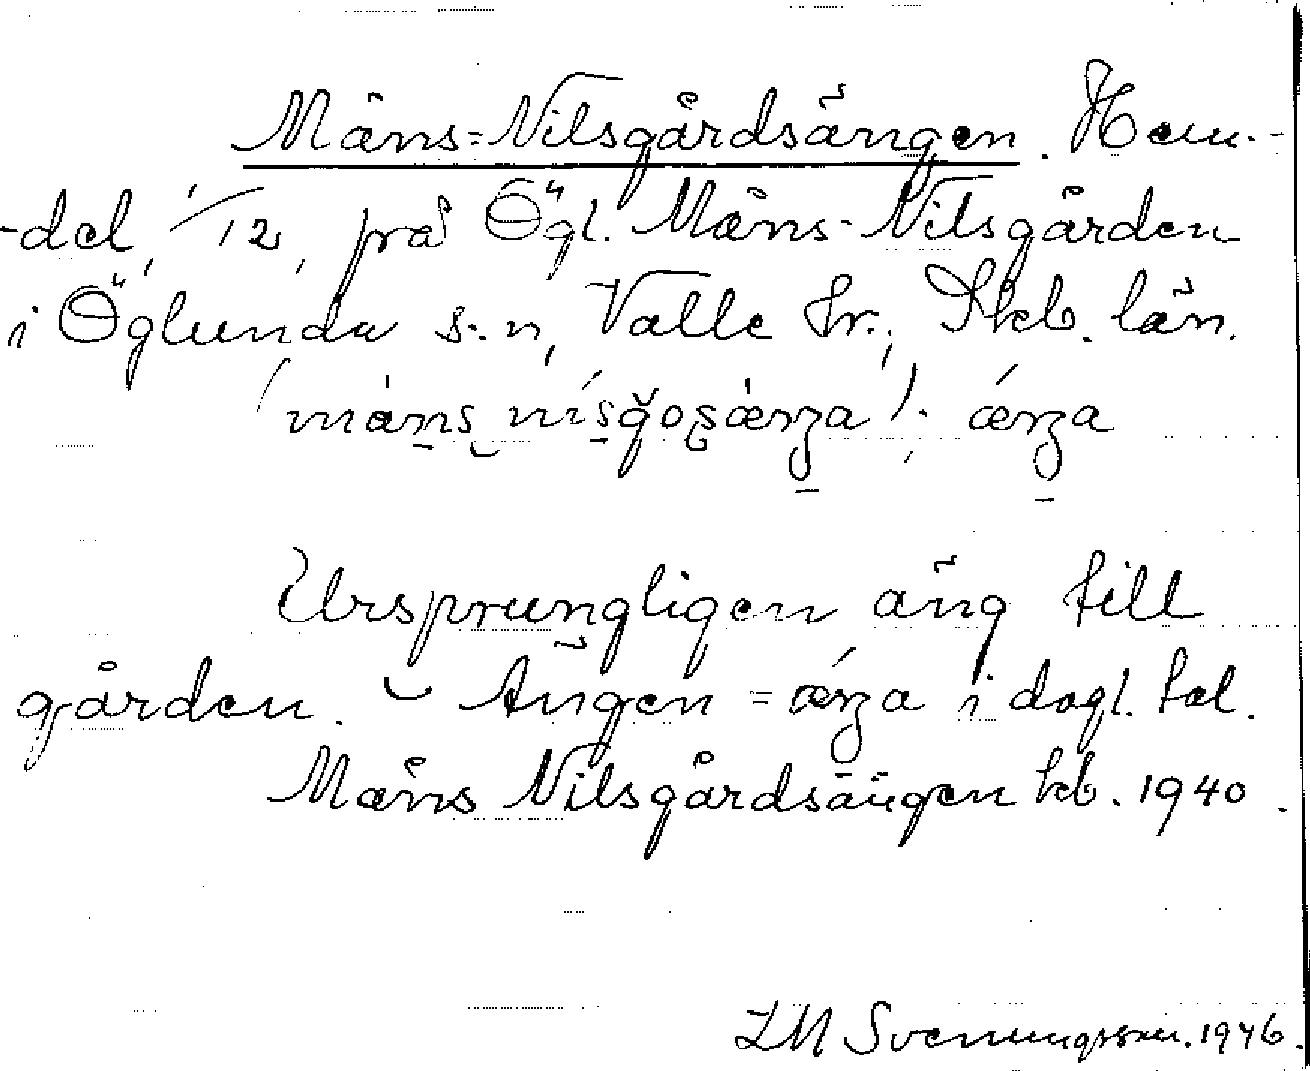 Måns-Nilsgårdsängen. Hem-
-del, 1/12, på Ögl. Måns-Nilsgården
i Öglunda s-n, Valle hr., Skb. län.
Ursprungligen äng till
gården. Ängen = i dagl. tal.
Måns Nilsgårdsängen kb. 1940.
LM Svenungsson. 1946.